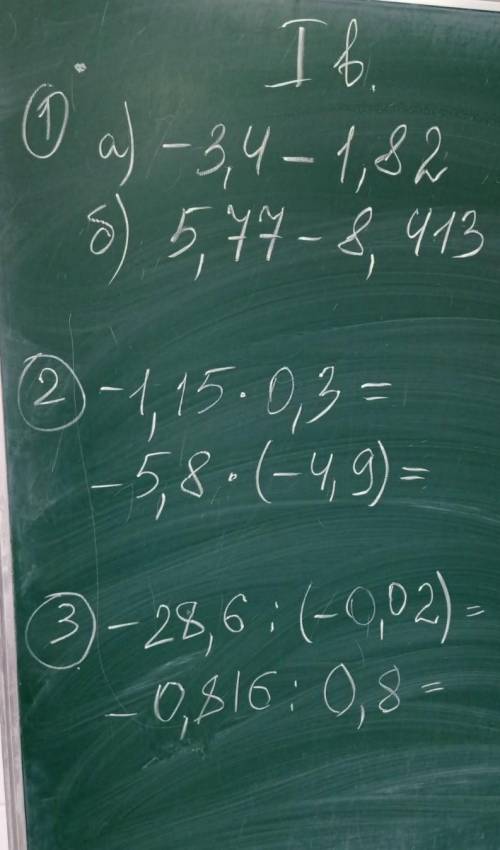 I в.
① а) -3,4 - 1,82
б) 5,77 - 8,413
② -1,15 · 0,3 =
-5,8 · (-4,9) =
③ -28,6 : (-0,02) =
-0,816 : 0,8 =